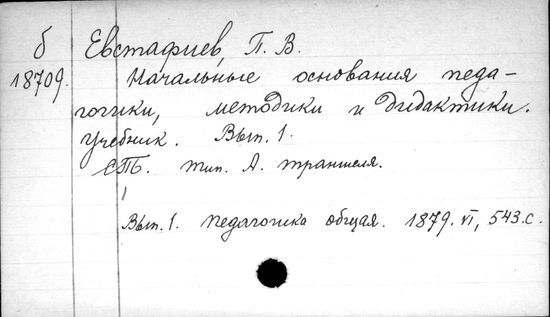 б Евстафиев, П. В.
18709. Начальные основания педа-
гогики, методики и дидактики.
Учебник. Вып. 1.
СПБ. тип. А. Траншеля.
1
Вып. 1. Педагогика общая. 1879. VI, 543.с.